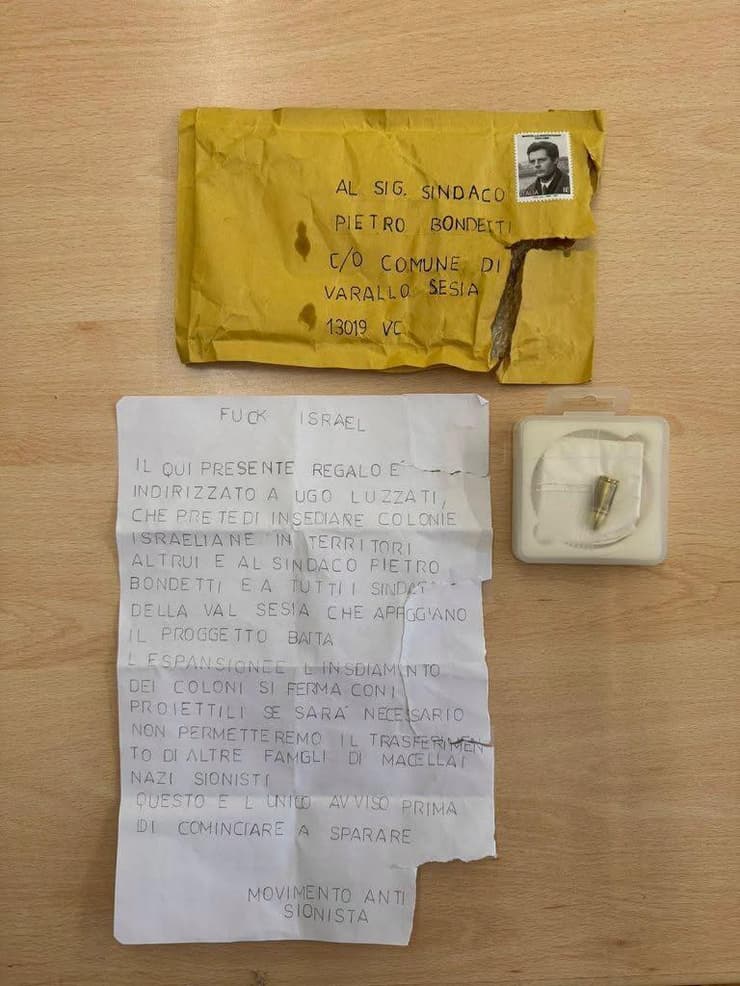 AL SIG. SINDACO
PIETRO BONDETTI
C/O COMUNE DI
VARALLO SESIA
13019 VC
ITALIA
FUCK ISRAEL
IL QUI PRESENTE REGALO E'
INDIRIZZATO A UGO LUZZATI,
CHE PRETEDI INSEDIARE COLONIE
ISRAELIANE IN TERRITORI
ALTRUI E AL SINDACO PIETRO
BONDETTI E A TUTTI I
DELLA VAL SESIA CHE APPGGIANO
IL PROGGETTO BAITA
L ESPANSIONE E L INSDIAMNTO
DEI COLONI SI FERMA CON I
PROIETTILI SE SARA' NECESSARIO
NON PERMETTEREMO IL TRASFERIMEN
TO DI ALTRE FAMGLI DI MACELLAI
NAZI SIONISTI
QUESTO E L UNICO AVVISO PRIMA
DI COMINCIARE A SPARARE
MOVIMENTO ANTI
SIONISTA